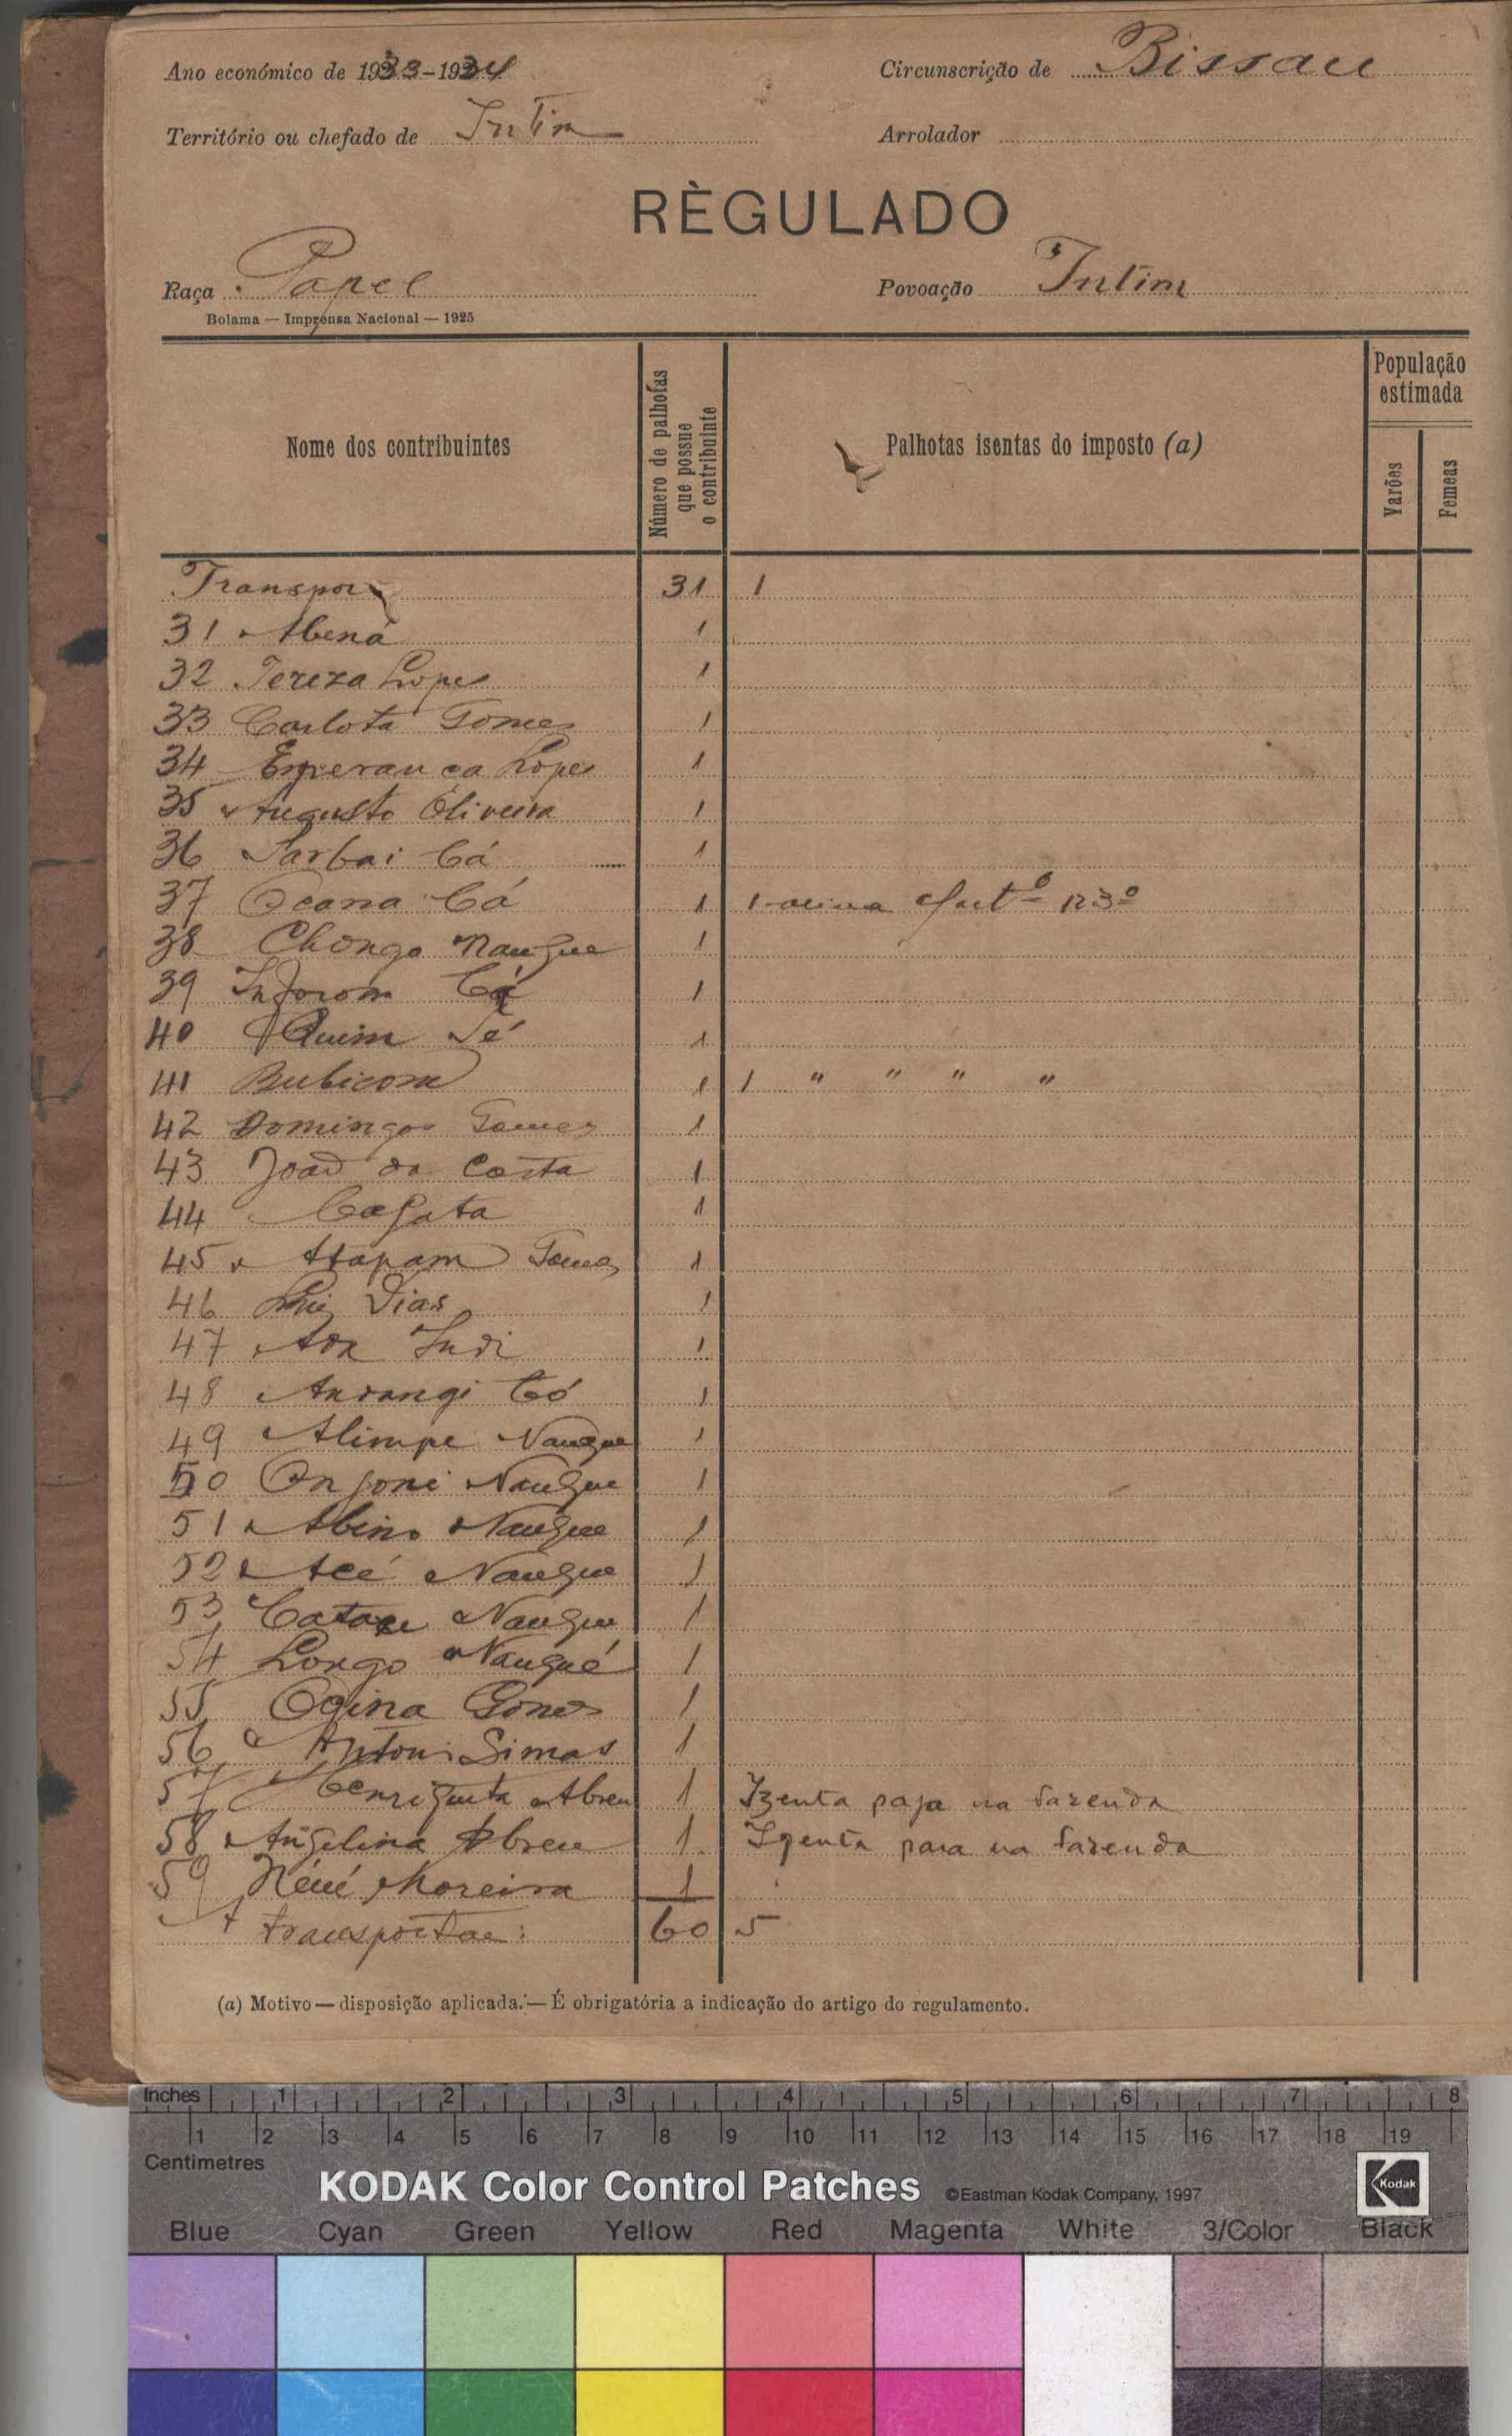 Ano económico de 1933-1934
Circunscrição de Bissau
Território ou chefado de Intim
Arrolador
RÈGULADO
Raça Papel
Povoação Intim
Bolama — Imprensa Nacional — 1925
Nome dos contribuintes
Número de palhotas que possue o contribuinte
Palhotas isentas do imposto (a)
População estimada
Varões
Femeas
Transpor 31 1
31 Abená 1
32 Tereza Lopes 1
33 Carlota Gomes 1
34 Esperança Lopes 1
35 Augusto Oliveira 1
36 Sarbai Cá 1
37 Ocana Cá 1 1
38 Chongo Nangue 1
39 Indorom Cá 1
40 Quim Sé 1
41 Bubicom 1 1 " " " "
42 Domingos Gomes 1
43 João da Costa 1
44 1
45 Atapam Gomes 1
46 Luiz Dias 1
47 Ada Indi 1
48 Andangi Có 1
49 Alimpe Nanque 1
50 Onsoni Nanque 1
51 Abino Nanque 1
52 Acé Nanque 1
53 Nanque 1
54 Longo Nanqué 1
55 Ogina Gomes 1
56 Antoni Simas 1
57 Henriqueta Abreu 1 Izenta paga na fazenda
58 Angelina Abreu 1 Izenta para na fazenda
59 Néné Moreira 1
A transportar: 60 5
(a) Motivo — disposição aplicada. — É obrigatória a indicação do artigo do regulamento.
Inches 1 2 3 4 5 6 7 8
1 2 3 4 5 6 7 8 9 10 11 12 13 14 15 16 17 18 19
Centimetres
KODAK Color Control Patches ©Eastman Kodak Company, 1997 Kodak
Blue Cyan Green Yellow Red Magenta White 3/Color Black